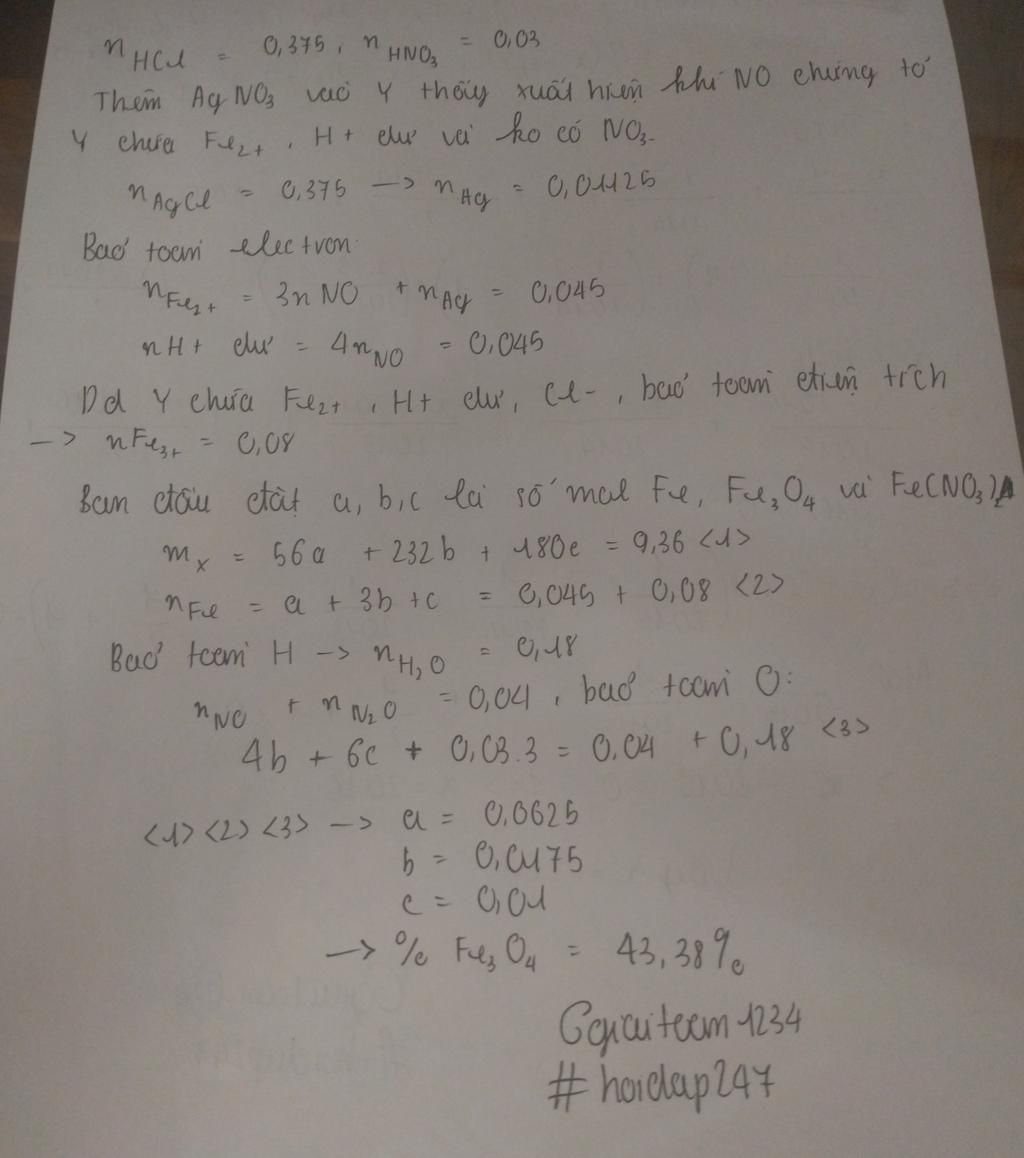 nHCl = 0,375, nHNO3 = 0,03
Thêm AgNO3 vào Y thấy xuất hiện khí NO chứng tỏ
Y chứa Fe2+, H+ dư và ko có NO3-
nAgCl = 0,375 —> nAg = 0,01125
Bảo toàn electron:
nFe2+ = 3nNO + nAg = 0,045
nH+ dư = 4nNO = 0,045
Dd Y chứa Fe2+, H+ dư, Cl-, bảo toàn điện tích
—> nFe3+ = 0,08
Ban đầu đặt a, b, c là số mol Fe, Fe3O4 và Fe(NO3)2
mX = 56a + 232b + 180c = 9,36 <1>
nFe = a + 3b + c = 0,045 + 0,08 <2>
Bảo toàn H —> nH2O = 0,18
nNO + nN2O = 0,04, bảo toàn O:
4b + 6c + 0,03.3 = 0,04 + 0,18 <3>
<1> <2> <3> —> a = 0,0625
b = 0,0175
c = 0,01
—> % Fe3O4 = 43,38%
Ggiaiteam1234
#hoidap247